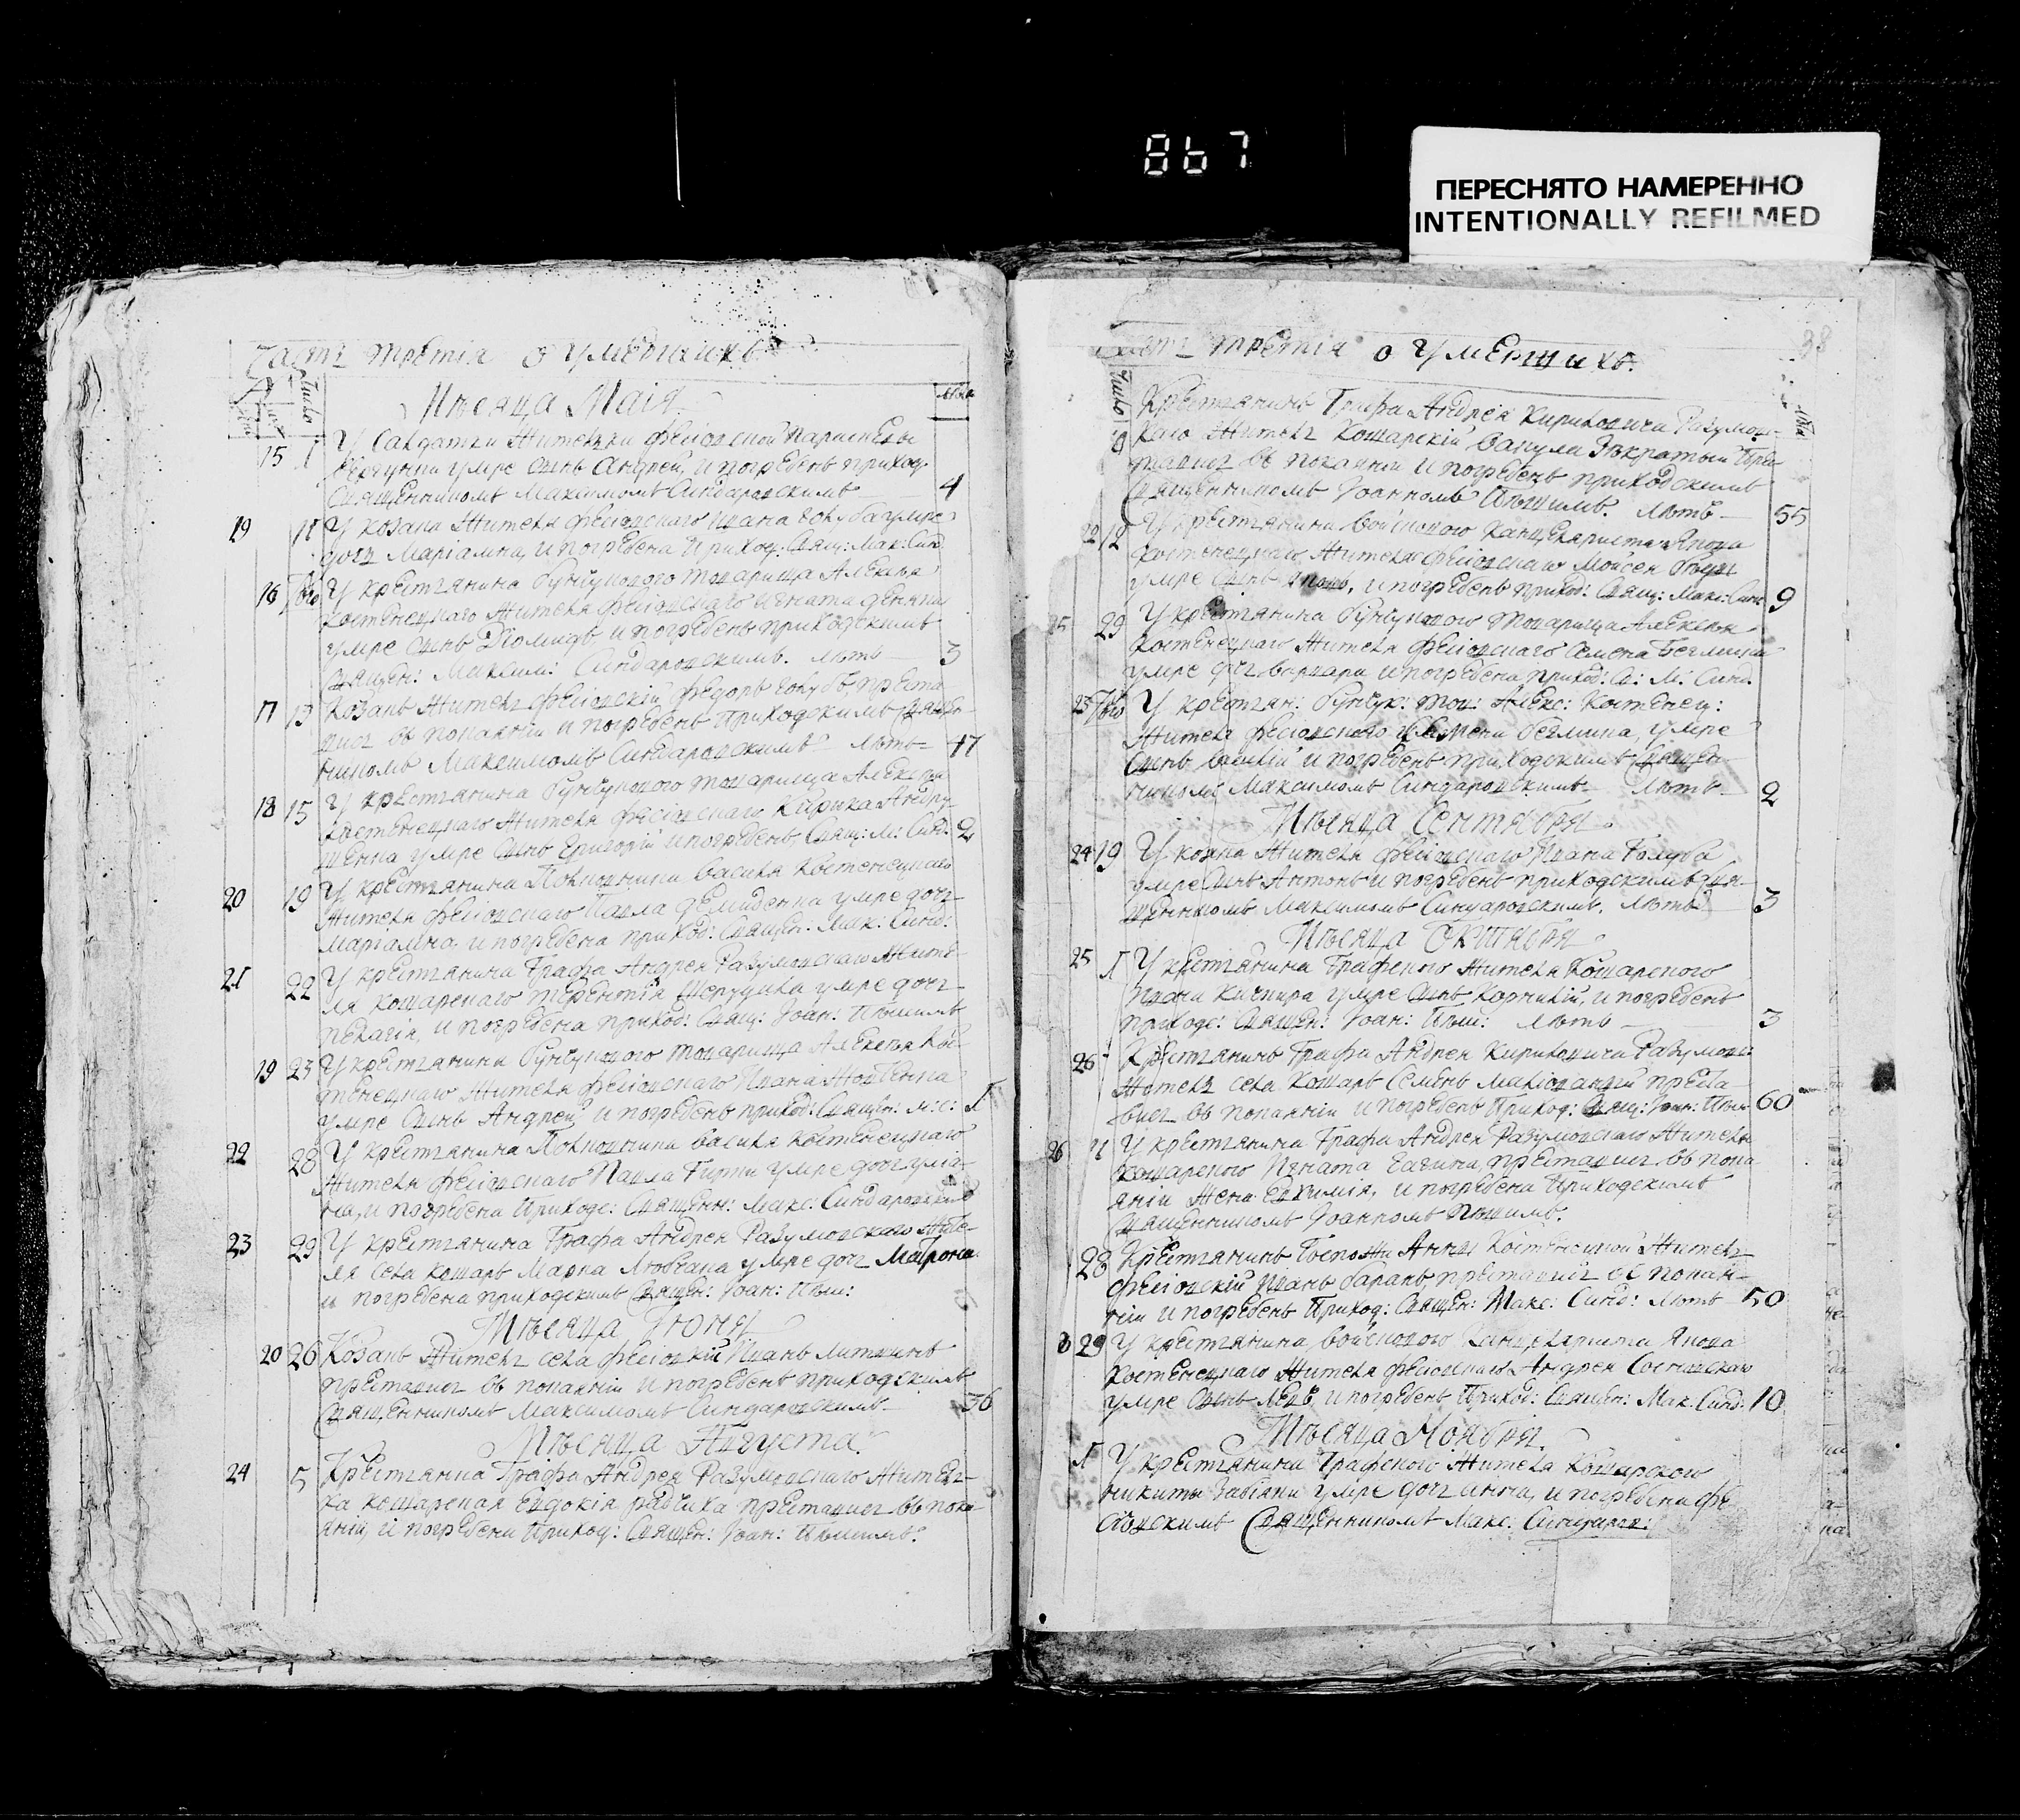 867
ПЕРЕСНЯТО НАМЕРЕННО
INTENTIONALLY REFILMED
часть третія о умершихъ
Мѣсяца Маія
Число
лѣта
15 1 У Салдатки Жителки фесювской Параскевы
умре сынъ Андрей, и погребенъ приход:
Священникомъ Максимомъ Синдаровскимъ 4
19 11 У козака Жителя фесювского Ивана голуба умре
дочь Маріамна, и погребена Приход: Свящ: Мак: Синд
16 У крестянина бунчукового товарища Алексѣя
костенецкаго Жителя фесювскаго Игната
умре сынъ Диомидъ, и погребенъ приходскимъ
Священ: Максим: Синдаровскимъ. лѣтъ 3
17 13 Козакъ Житель фесювскій федоръ голубъ, преста
вися въ покаяніи и погребенъ Приходскимъ Священ
никомъ Максимомъ Синдаровскимъ лѣтъ 47
18 15 У крестянина бунчукового товарища Алексѣя
костенецкаго Жителя фесювскаго Кирика Андру
щенка умре сынъ Григорій и погребенъ, Свящ: М: Синд: 2
20 19 У крестянина Полковника василя костенецкаго
Жителя фесювскаго Павла демиденка умре дочь
Маріамна и погребена приход: Священ: Мак: Синд:
21 22 У крестянина Графа Андрея Разумовскаго Жите
ля кошарскаго терентія умре дочь
пелагія, и погребена приход: Свящ: Іоан: Пѣшимъ
19 23 У крестянина бунчукового товарища Алексѣя Кос
тенецкаго Жителя фесювскаго Ивана
умре сынъ Андрей и погребенъ приход: Священ: м: с: 1
22 28 У крестянина Полковника василя костенецкаго
Жителя фесювскаго Павла умре дочь улія
на, и погребена Приходс: Священн: Макс: Синдаровским
23 29 У крестянина Графа Андрея Разумовского Жите
ля села кошаръ Марка умре дочь Матрона
и погребена приходскимъ Священ: Іоан: Пѣш:
Мѣсяца Іюня
20 26 Козакъ Житель села фесювкій Иванъ литвинъ
преставися въ покаяніи и погребенъ приходскимъ
Священникомъ Максимомъ Синдаровскимъ 36
Мѣсяца Августа
24 5 Крестянка Графа Андрея Разумовскаго Жител
ка кошарская Евдокія преставися въ пока
яніи, и погребена Приход: Священ: Іоан: Пѣшимъ.
38
часть третія о умершихъ.
Число
лѣта
Крестянинъ Графа Андрея Кириловича Разумов
каго Житель Кошарскій вакула прес
тавися въ покаяніи и погребенъ приходскимъ
Священникомъ Іоанномъ Пѣшимъ. лѣтъ 55
22 12 У крестянина войскового канцеляриста Якова
костенецкаго Жителя фесювскаго Мойсея
умре сынъ и погребенъ приход: Свящ: Макс: Синд 9
25 29 У крестянина бунчукового товарища Алексѣя
костенецкаго Жителя фесювскаго Семена
умре дочь варвара и погребена приход: Св: М: Синд.
23 У крестян: бунчук: тов: Алекс: Костенец:
Жителя фесювского Семена умре
сынъ василій и погребенъ приходскимъ Священ
никомъ Максимомъ Синдаровскимъ лѣтъ 2
Мѣсяца Сентября
24 19 У козака Жителя фесювскаго Ивана Голуба
умре сынъ Антонъ и погребенъ приходскимъ Свя
щенникомъ Максимомъ Синдаровскимъ. лѣтъ 3
Мѣсяца Октября
25 1 У крестянина Графского Жителя Кошарского
Ивана умре сынъ Корнилій, и погребенъ
приходс: Священ: Іоан: Пѣш: лѣтъ 3
26 Крестянинъ Графа Андрея Кириловича Разумовс
Житель села кошаръ Семенъ преста
вися въ покаяніи и погребенъ Приход: Свящ: Іоан: Пѣш 60
26 У крестянина Графа Андрея Разумовскаго Жителя
кошарского Игната преставися въ пока
яніи Жена Евфимія, и погребена Приходскимъ
Священникомъ Іоанномъ Пѣшимъ.
28 Крестянинъ Госпожи Анны Костенецкой Житель
фесювскій Иванъ баранъ, преставися въ покая
ніи и погребенъ Приход: Священ: Макс: Синд: лѣтъ 50
29 У крестянина войскового канцеляриста Якова
костенецкаго Жителя фесювскаго Андрея
умре сынъ и погребенъ Приход: Священ: Мак: Синд: 10
Мѣсяца Ноября
1 У крестянина Графского Жителя Кошарского
никиты умре дочь анна, и погребена фе
сювскимъ Священникомъ Макс: Синдаров: